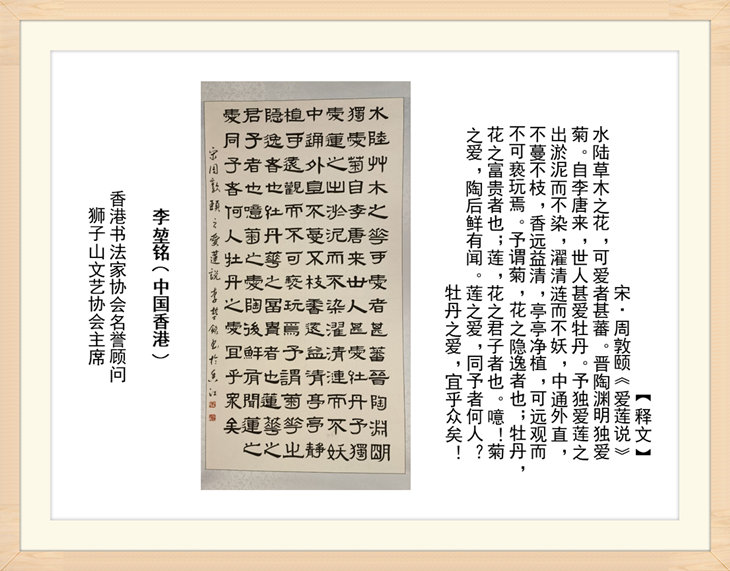 【释文】
宋·周敦颐《爱莲说》
水陆草木之花，可爱者甚蕃。晋陶渊明独爱
菊。自李唐来，世人甚爱牡丹。予独爱莲之
出淤泥而不染，濯清涟而不妖，中通外直，
不蔓不枝，香远益清，亭亭净植，可远观而
不可亵玩焉。予谓菊，花之隐逸者也；牡丹，
花之富贵者也；莲，花之君子者也。噫！菊
之爱，陶后鲜有闻。莲之爱，同予者何人？
牡丹之爱，宜乎众矣！
水陸艸木之華可愛者甚蕃晉陶淵明
獨愛菊自李唐来世人甚愛牡丹予獨
愛蓮之出淤泥而不染濯清漣而不妖
中通外直不蔓不枝香遠益清亭亭靜
植可遠觀而不可褻玩焉予謂菊華之
隱逸者也牡丹華之富貴者也蓮華之
君子者也噫菊之愛陶後鮮有聞蓮之
愛同予者何人牡丹之愛宜乎眾矣
宋周敦頤之愛蓮說 李堃銘書於香江
李堃铭（中国香港）
香港书法家协会名誉顾问
狮子山文艺协会主席